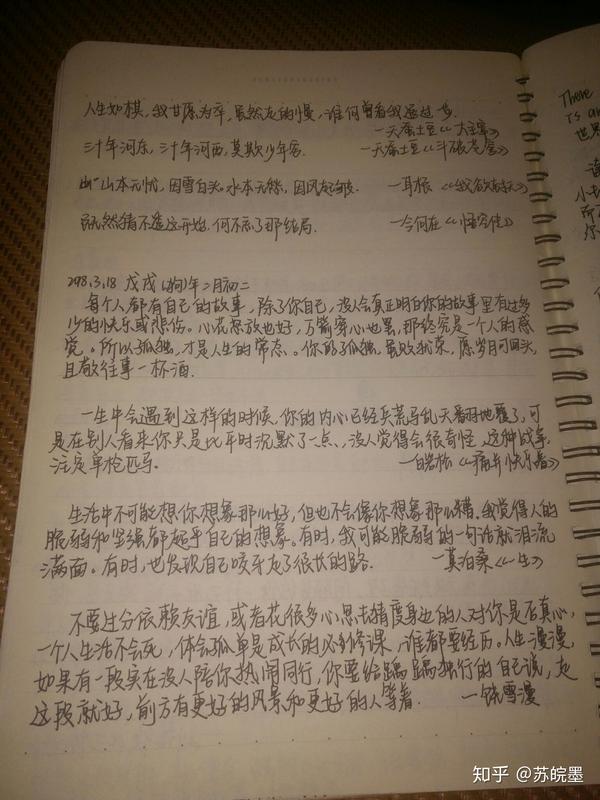 人生如棋,我甘愿为卒,虽然走的慢,谁何曾看我退过一步.
一天蚕土豆《大主宰》
三十年河东,三十年河西,莫欺少年穷. 一天蚕土豆《斗破苍穹》
山本无忧,因雪白头.水本无愁,因风起皱. 一耳根《我欲封天》
既然猜不透这开始,何不忘了那结局. 一今何在《悟空传》
298.3.18 戊戌(狗)年二月初二
每个人都有自己的故事,除了你自己,没人会真正明白你的故事里有过多
少的快乐或悲伤。心花怒放也好,万箭穿心也罢,那终究是一个人的感
觉。所以孤独,才是人生的常态。你的孤独,虽败犹荣,愿岁月可回头,
且敬往事一杯酒.
一生中会遇到这样的时候,你的内心已经兵荒马乱天翻地覆了,可
是在别人看来你只是比平时沉默了一点,没人觉得会很奇怪,这种战争,
注定单枪匹马。 一白岩松《痛并快乐着》
生活中不可能想你想象那么好,但也不会像你想象那么糟.我觉得人的
脆弱和坚强都超乎自己的想象.有时,我可能脆弱的一句话就泪流
满面。有时,也发现自己咬牙走了很长的路. 一莫泊桑《一生》
不要过分依赖友谊,或者花很多心思去猜度身边的人对你是否真心,
一个人生活不会死,体会孤单是成长的必修课,谁都要经历。人生漫漫,
如果有一段实在没人陪你热闹同行,你要给踽踽独行的自己说,走
这段就好,前方有更好的风景和更好的人等着. 一饶雪漫
There
is an
世界
读
小
所
尔
知乎 @苏皖墨